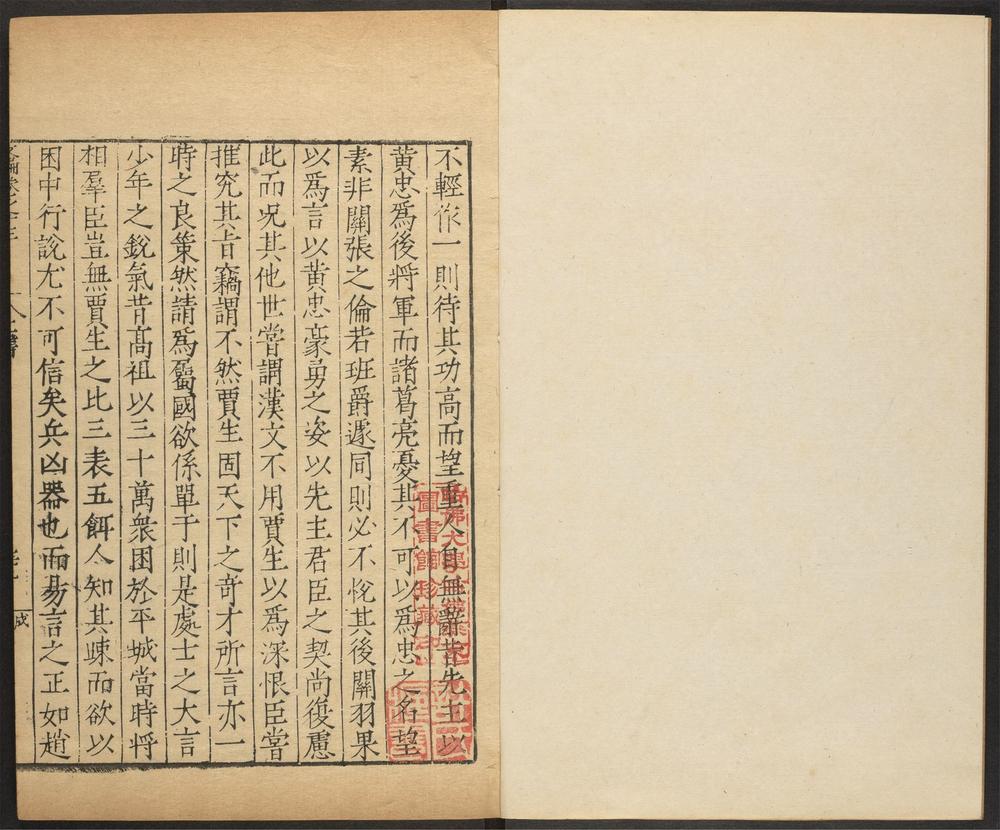 不輕作一則待其功高而望重人自無辭昔先主以
黃忠爲後將軍而諸葛亮憂其不可以爲忠之名望
素非關張之倫若班爵遽同則必不恱其後關羽果
以爲言以黃忠豪勇之姿以先主君臣之契尚復慮
此而况其他世甞謂漢文不用賈生以爲深恨臣甞
推究其旨竊謂不然賈生固天下之奇才所言亦一
時之良策然請爲屬國欲係單于則是處士之大言
少年之銳氣昔髙祖以三十萬衆困於平城當時將
相羣臣豈無賈生之比三表五餌人知其踈而欲以
困中行說尤不可信矣兵凶器也而易言之正如趙
成
圖書館珍藏